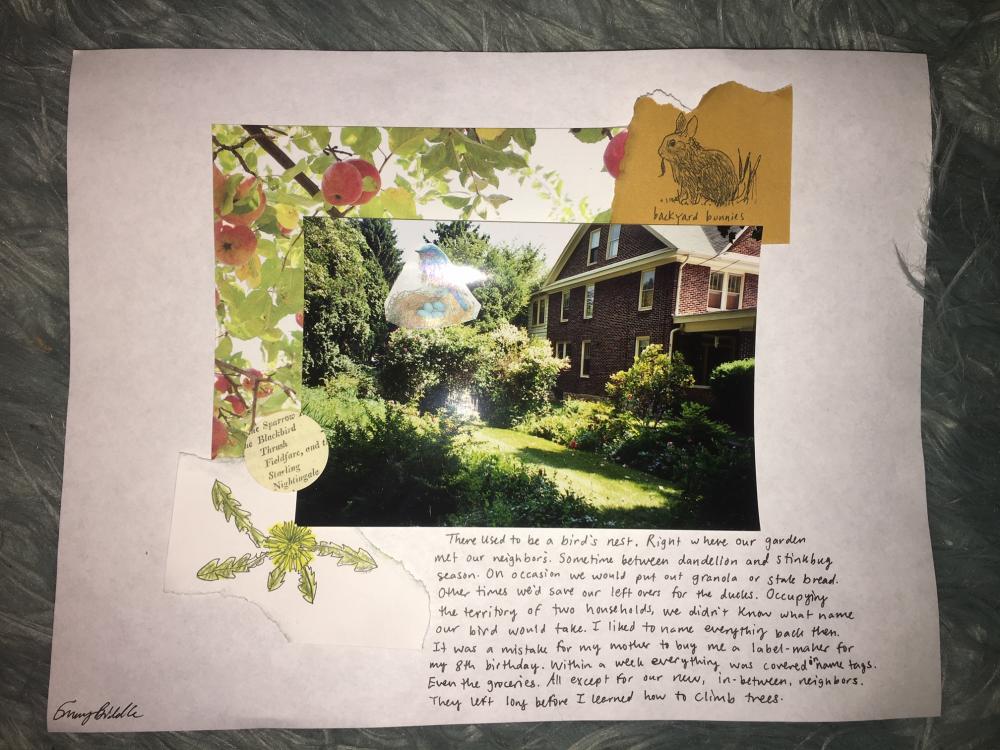 backyard bunnies
he Sparrow
he Blackbird
Thrush
Fieldfare, and t
Starling
Nightingale
There used to be a bird's nest. Right where our garden
met our neighbors. Sometime between dandelion and stinkbug
season. On occasion we would put out granola or stale bread.
Other times we'd save our left overs for the ducks. Occupying
the territory of two households, we didn't know what name
our bird would take. I liked to name everything back then.
It was a mistake for my mother to buy me a label-maker for
my 8th birthday. Within a week everything was covered in name tags.
Even the groceries. All except for our new, in-between, neighbors.
They left long before I learned how to climb trees.